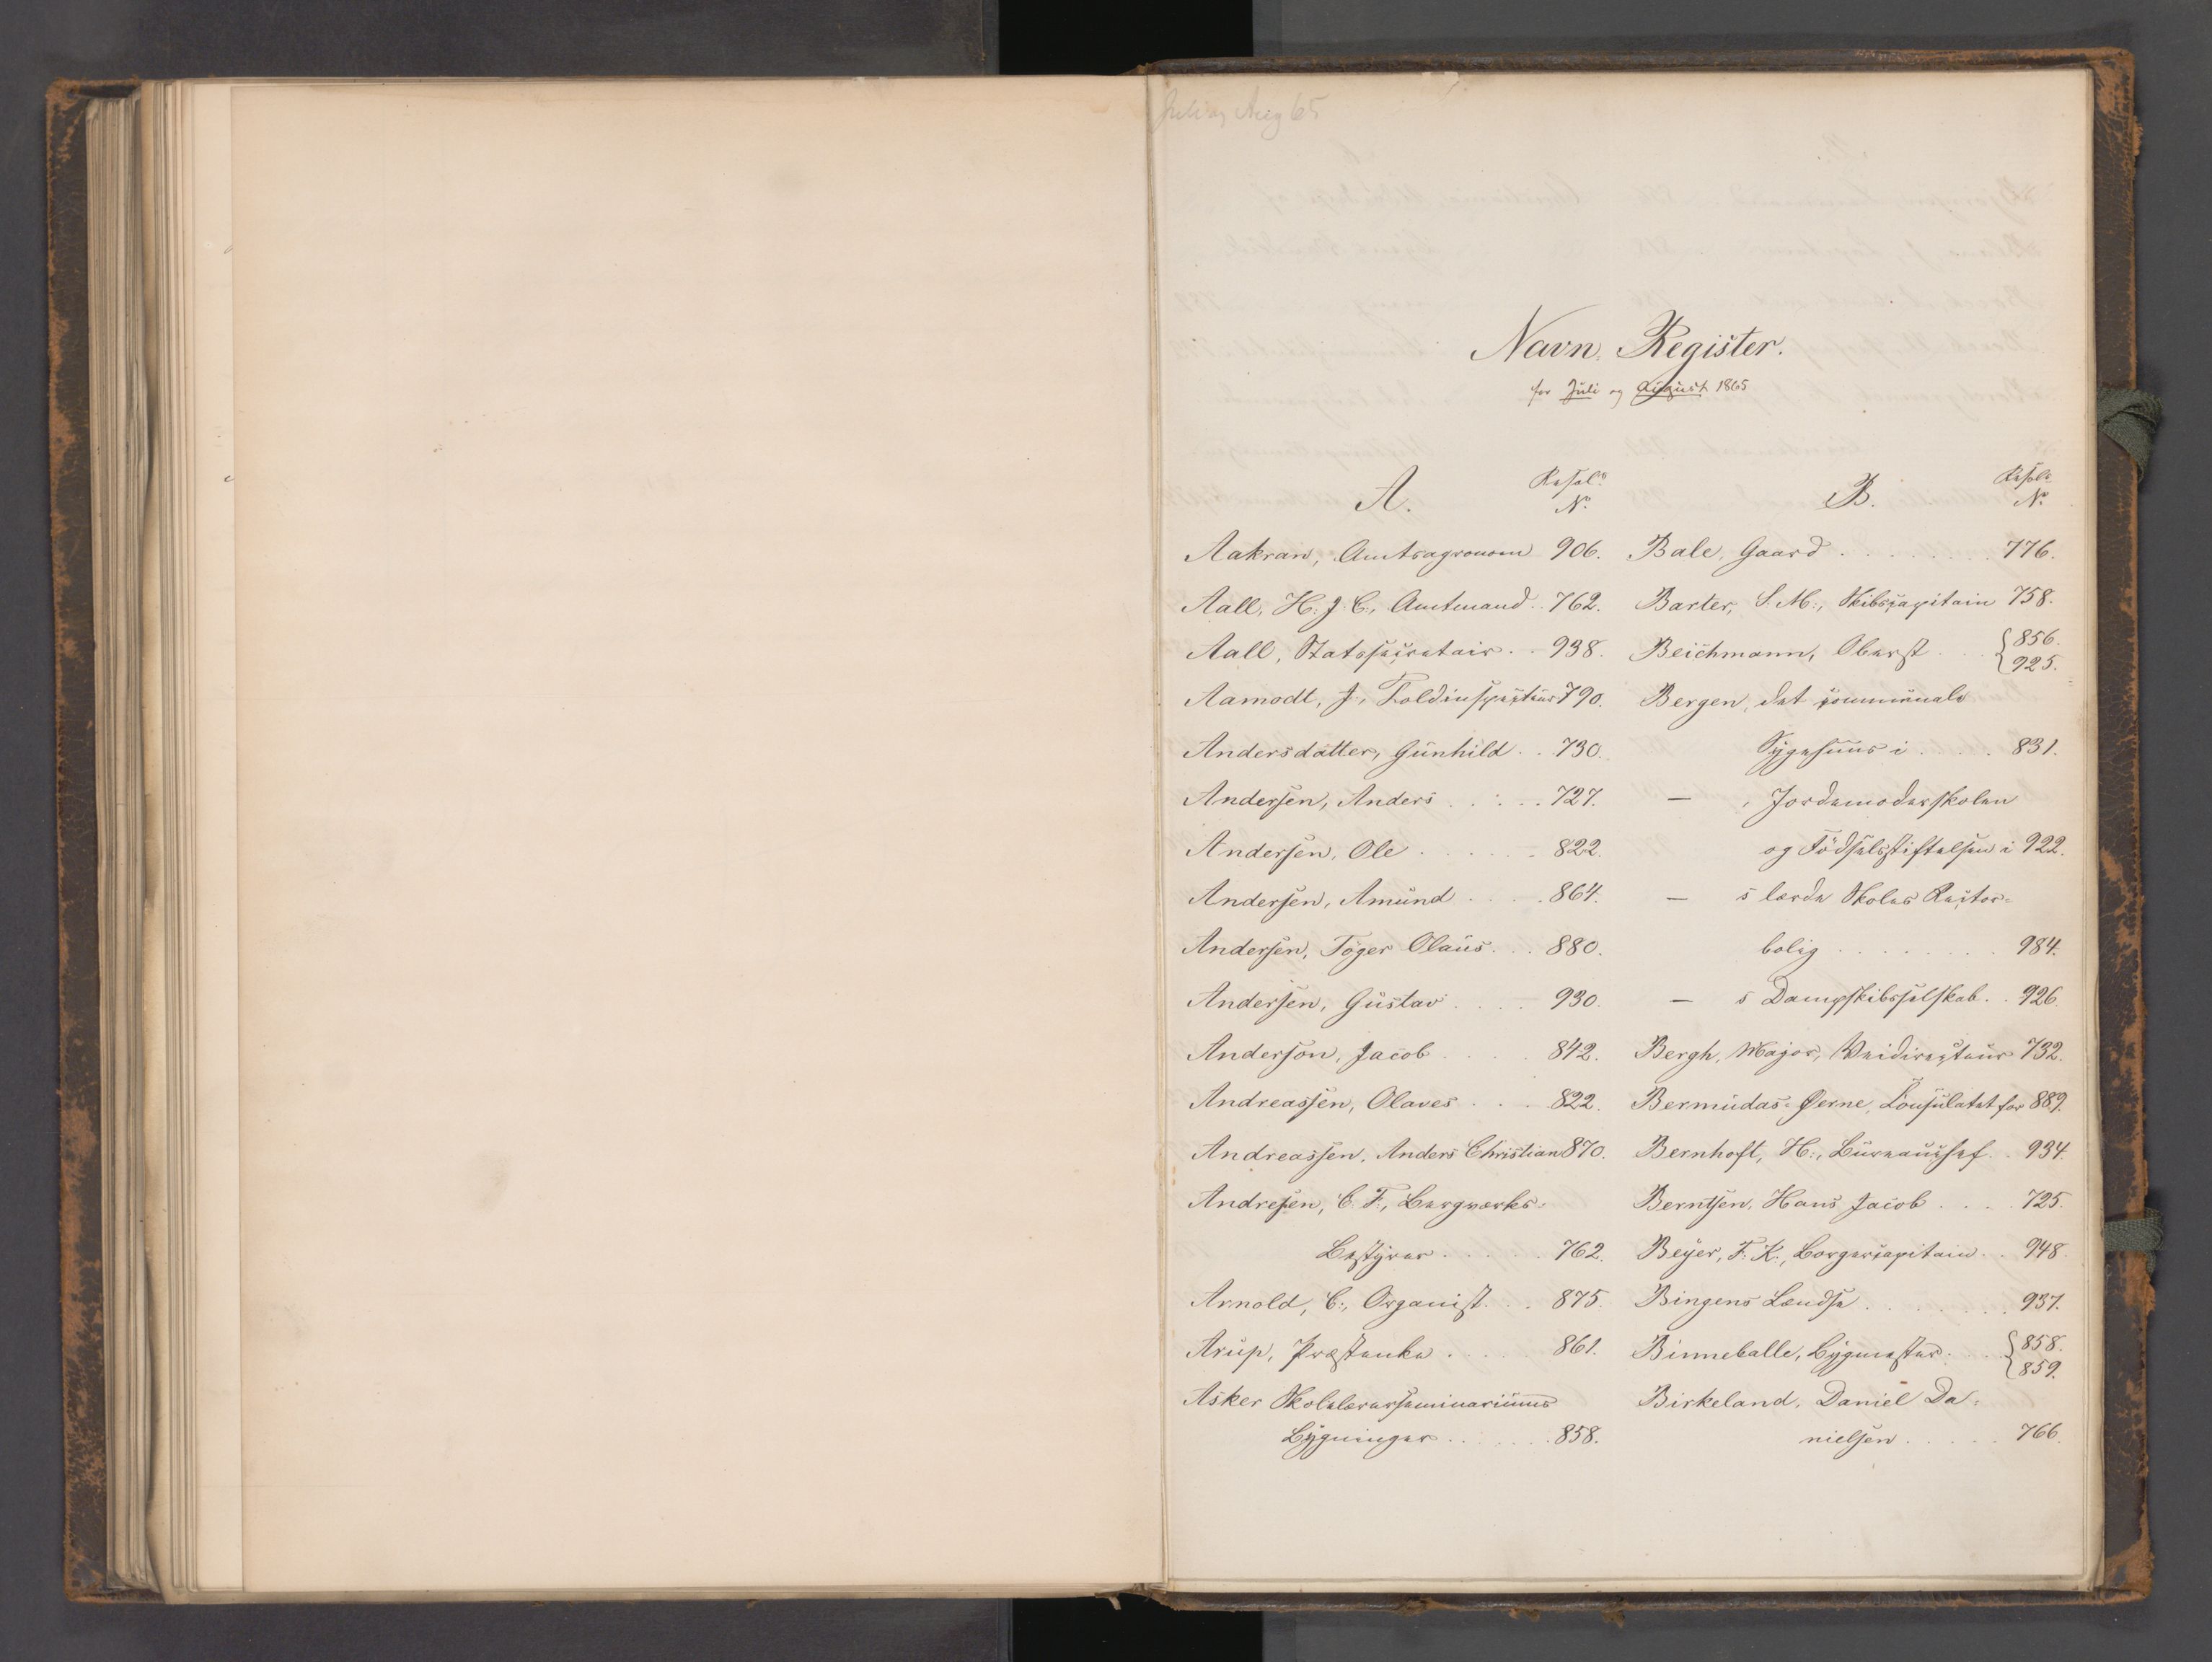 Juli og Aug 65
Navn-Register.
for Juli og August 1865
A.
Resol:
No.
Aakran, Amtsagronom 906.
Aall, H. J. C., Amtmand . . 762.
Aall, Statssecretair . . 938.
Aamodt, J., Toldinspecteur 790.
Andersdatter, Gunhild . . 730.
Andersen, Anders . . . . 727.
Andersen, Ole . . . . . 822.
Andersen, Amund . . . . 864.
Andersen, Töger Olaus . . . 880.
Andersen, Gustav . . . . 930.
Anderson, Jacob . . . . 842.
Andreassen, Olaves . . . 822.
Andreassen, Anders Christian 870.
Andresen, C. F., Bergverks-
Bestyrer . . . . . 762.
Arnold, C., Organist . . . 875.
Arup, Præstenke . . . . 861.
Asker Skolelærerseminariums
Bygninger . . . . . . 858.
B.
Resol:
No.
Bale, Gaard . . . . . . . . 776.
Barter, S. M., Skibscapitain 758.
Beichmann, Oberst . . . {856.
{925.
Bergen, det communale
Sygehuus i . . . . 831.
— , Jordemoderskolen
og Födselsstiftelsen i 922.
— s lærde Skoles Rector-
bolig . . . . . . . . 984.
— s Dampskibsselskab . . 926.
Bergh, Major, Veidirecteur 732.
Bermudas-Øerne, Consulatet for 889.
Bernhoft, H., Bureauchef . . 934.
Berntsen, Hans Jacob . . . . 725.
Beyer, F. K., Borgercapitain . . 948.
Bingens Lendse . . . . . . . . 937.
Binneballe, Bygmester . . . {858.
{859.
Birkeland, Daniel Da-
nielsen . . . . . 766.